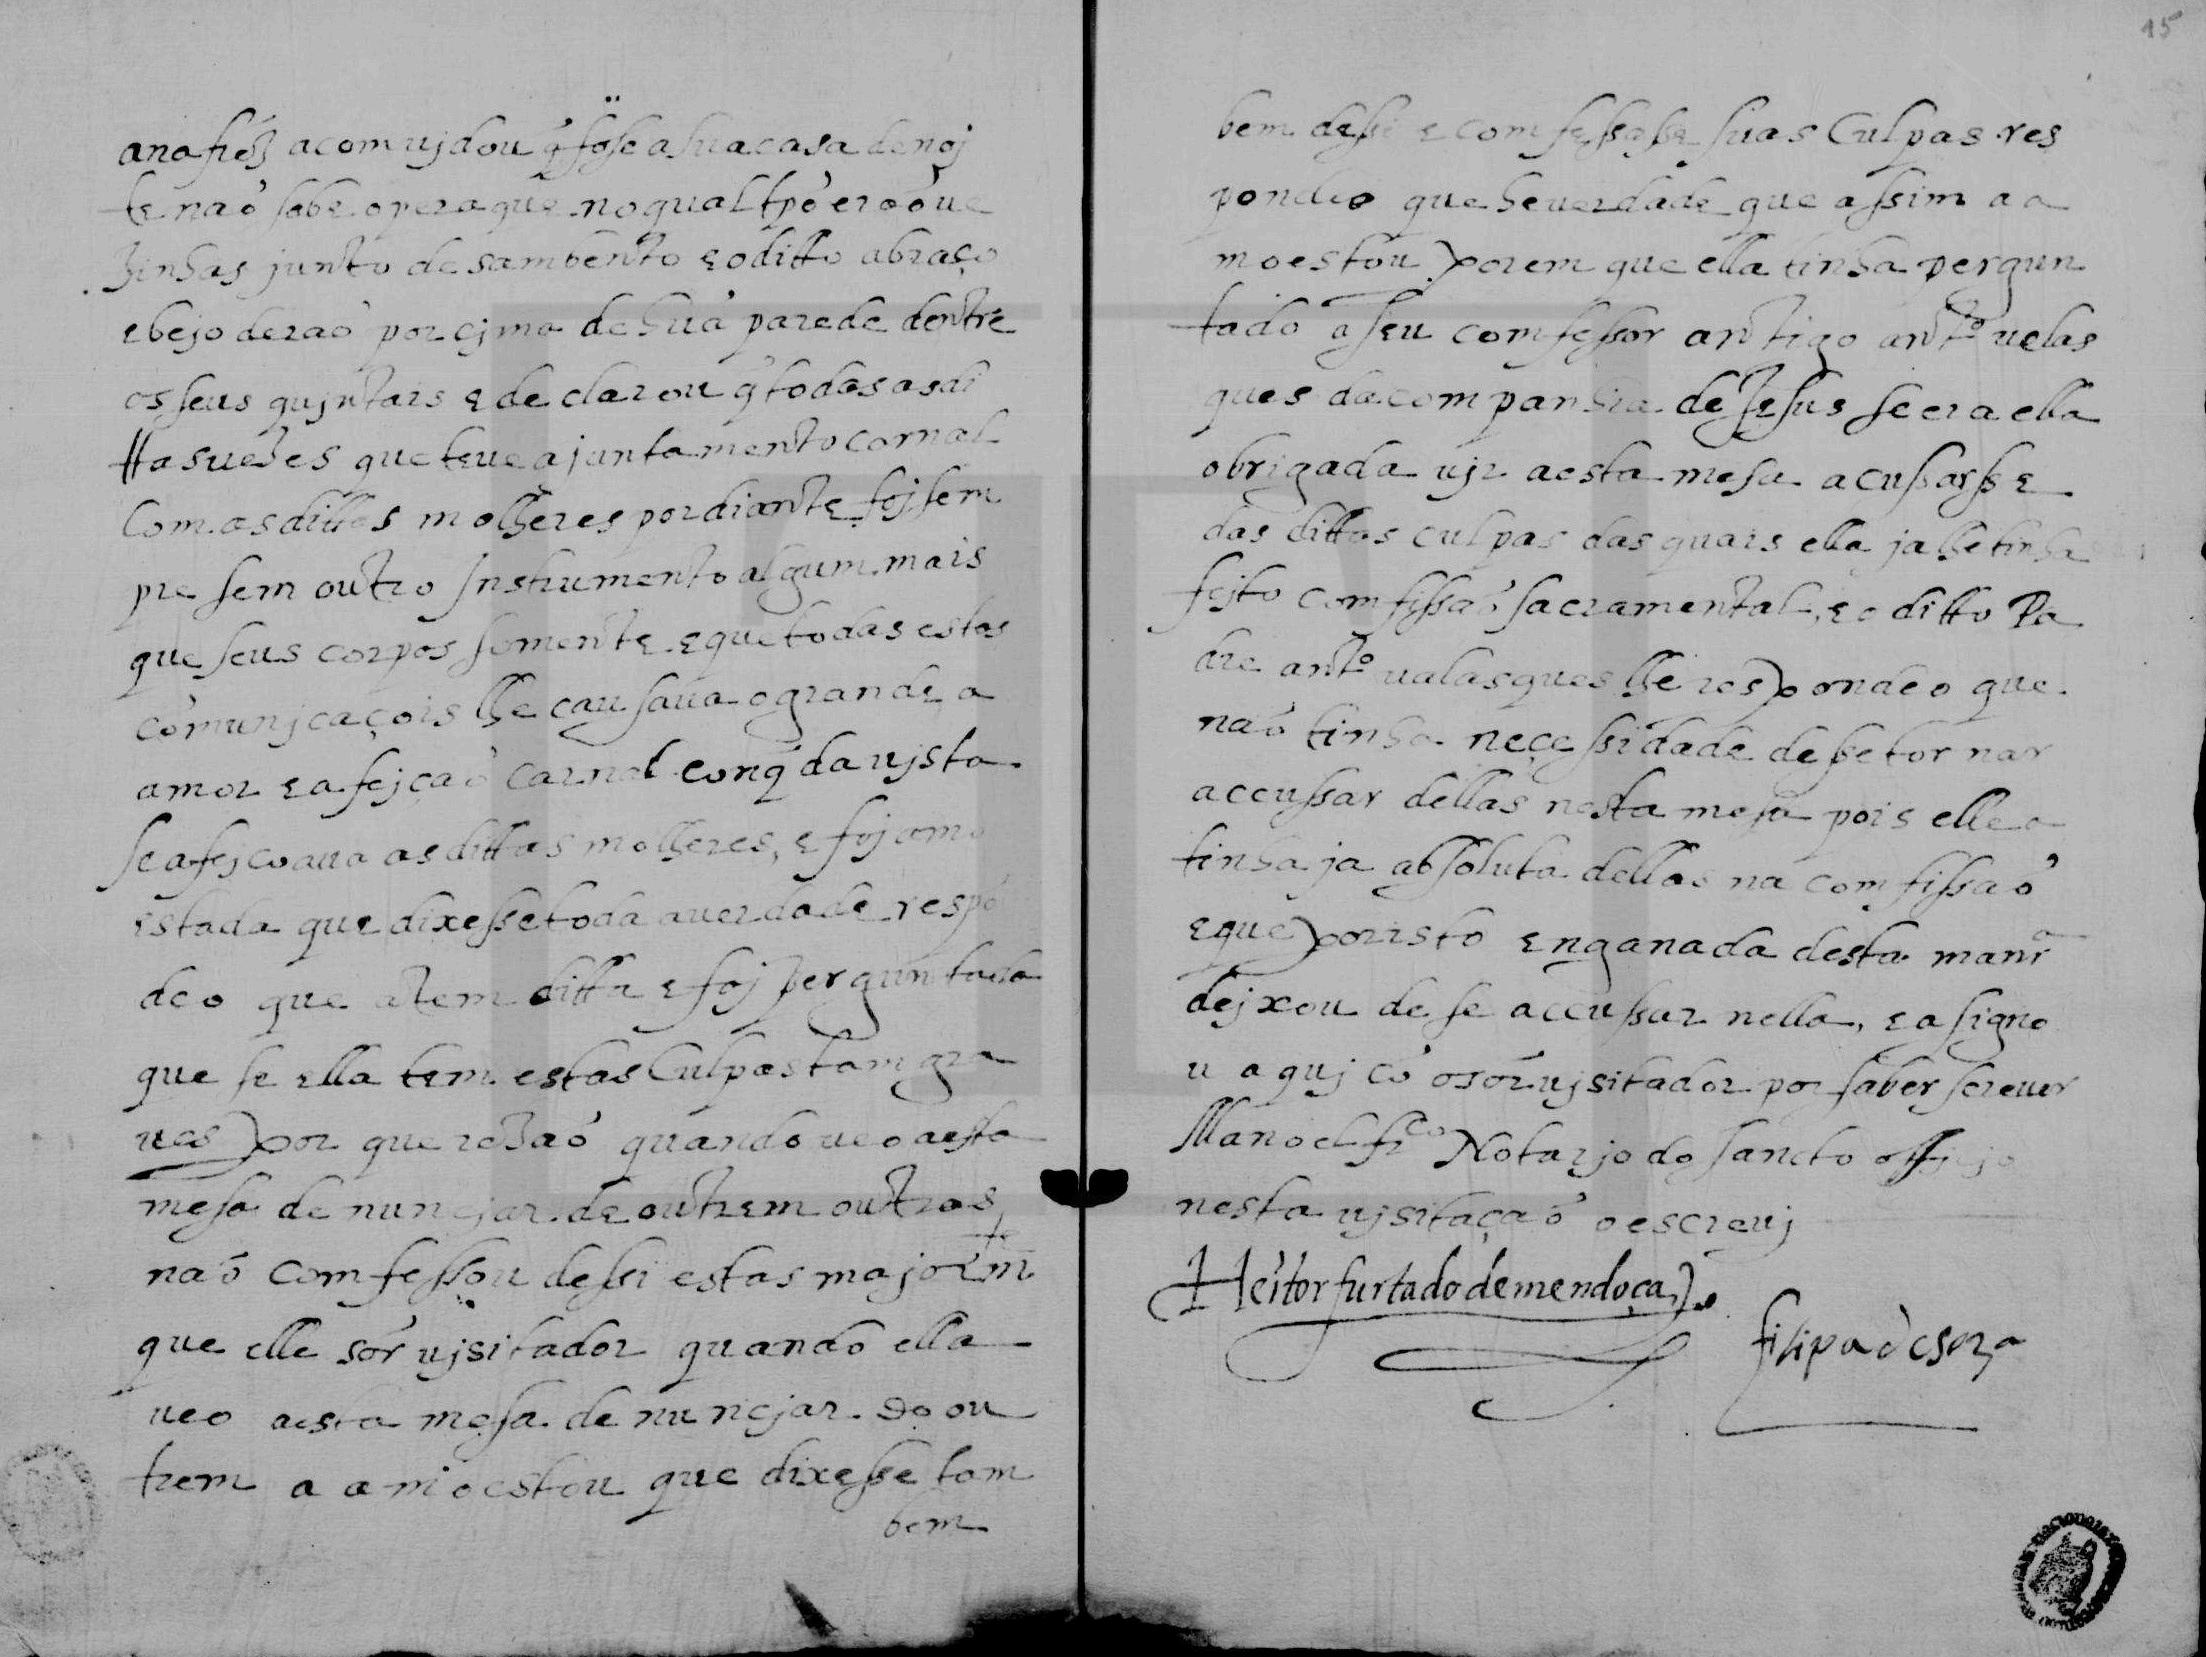 ana fiéz a comujdou q̃ fosse a sua casa de noj
te naõ sabe o pera que no qual tpõ eraõ ue
zinhas junto de sam bento e o ditto abraço
e bejo deraõ por çjma de hũa parede dentre
os seus qujntais e declarou q̃ todas as di
ttas uezes que teue ajuntamento carnal
Com as dittas molheres por diante foj sem
pre sem outro Instrumento algum mais
que seus corpos somente e que todas estas
cõmunjcaçois lhe causaua o grande a
amor e afejçaõ carnal con q̃ da ujsta
se afejcoaua as dittas molheres, e foj amo
estada que dixesse toda a uerdade respõ
deo que a tem ditta e foj perguntada
que se ella tem estas Culpas tam gra
ues por que rezaõ quando ueo a esta
mesa denuncjar de outrem outras
naõ comfessou de ssi estas majorm.te
que elle sõr ujsitador quando ella
ueo a esta mesa denuncjar do ou
trem a amoestou que dixesse tam
bem
15
bem de ssi e comfessasse suas Culpas res
pondeo que he uerdade que assim a a
moestou porem que ella tinha pergun
tado a seu comfessor antigo ant.o uelas
ques da companhia de Jesus se era ella
obrigada ujr a esta mesa acussarsse
das dittas culpas das quais ella ja lhe tinha
fejto comfissaõ sacramental, e o ditto Pa
dre ant.o ualasques lhe respondeo que
naõ tinha neçessidade de se tornar
accussar dellas nesta mesa pois elle a
tinha ja absoluta dellas na comfissaõ
e que por isto enganada desta manr.a
dejxou de se accussar nella, e asigno
u aquj cõ o sõr ujsitador por saber screuer
Manoel fr.co Notarjo do sancto offiçjo
nesta ujsitaçaõ o escreuj
Heitor furtado de mendoça
filipa de soza